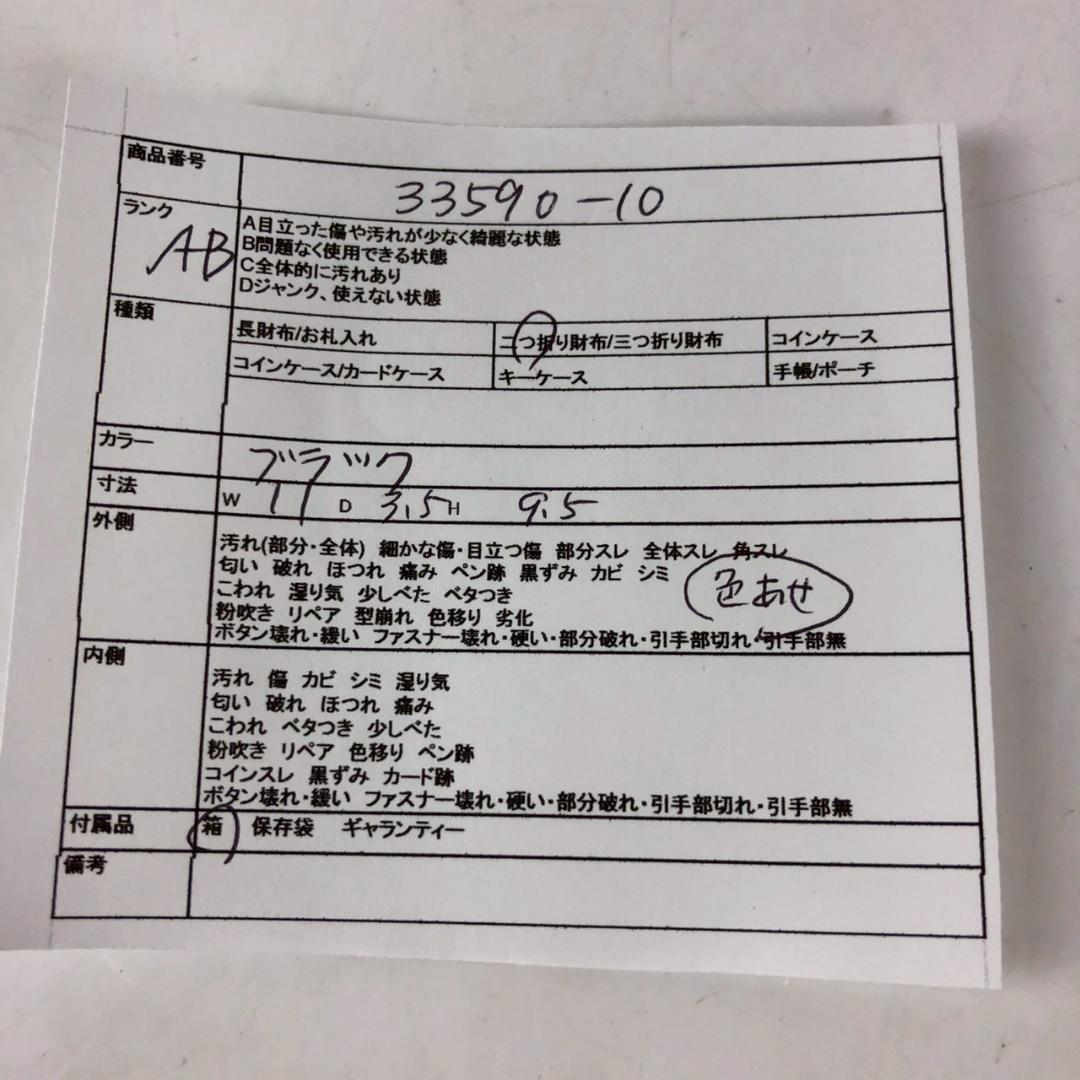 商品番号 33590-10
ランク AB
A目立った傷や汚れが少なく綺麗な状態
B問題なく使用できる状態
C全体的に汚れあり
Dジャンク、使えない状態
種類
長財布/お札入れ 二つ折り財布/三つ折り財布 コインケース
コインケース/カードケース キーケース 手帳/ポーチ
カラー ブラック
寸法 W 11 D 3.5 H 9.5
外側
汚れ(部分・全体) 細かな傷・目立つ傷 部分スレ 全体スレ 角スレ
匂い 破れ ほつれ 痛み ペン跡 黒ずみ カビ シミ 色あせ
こわれ 湿り気 少しべた ベタつき
粉吹き リペア 型崩れ 色移り 劣化
ボタン壊れ・緩い ファスナー壊れ・硬い・部分破れ・引手部切れ・引手部無
内側
汚れ 傷 カビ シミ 湿り気
匂い 破れ ほつれ 痛み
こわれ ベタつき 少しべた
粉吹き リペア 色移り ペン跡
コインスレ 黒ずみ カード跡
ボタン壊れ・緩い ファスナー壊れ・硬い・部分破れ・引手部切れ・引手部無
付属品 箱 保存袋 ギャランティー
備考